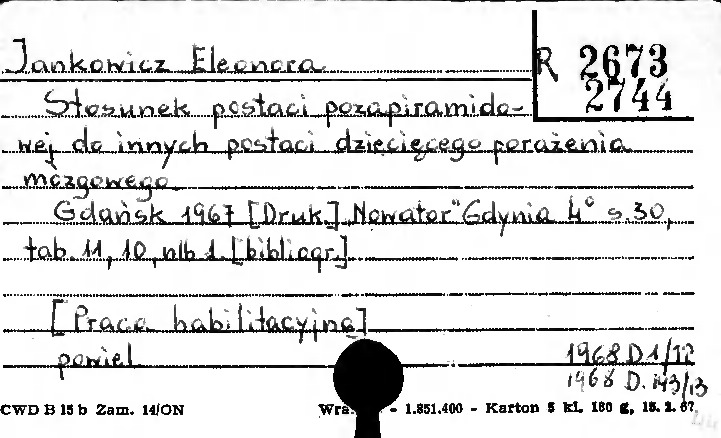 Jankowicz Eleonora
R 2673
2744
Stosunek postaci pozapiramido-
wej do innych postaci dziecięcego porażenia
mózgowego
Gdańsk 1967 [Druk.] „Nowator" Gdynia 4° s. 30,
tab. 11, 10, nlb 1. [bibliogr.]
[Praca habilitacyjna]
powiel.
1968 D 1/12
1968 D. 143/13
CWD B 15 b Zam. 14/ON - 1.851.400 - Karton 5 kl. 180 g, 15. 2. 67.
44